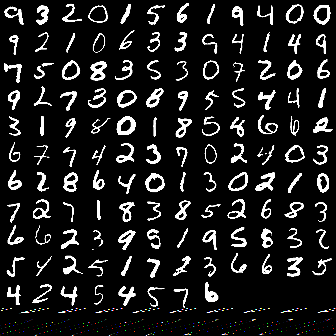 9 3 2 0 1 5 6 1 9 4 0 0
9 2 1 0 6 3 3 9 4 1 4 9
7 5 0 8 3 5 3 0 7 2 0 6
9 2 7 3 0 8 9 5 5 4 4 1
3 1 9 8 0 1 8 5 8 6 6 2
6 7 7 4 2 3 7 0 2 4 0 3
6 2 8 6 4 0 1 3 0 2 1 0
7 2 7 1 8 3 8 5 2 6 8 3
6 6 2 3 9 5 1 9 5 8 3 2
5 4 2 5 1 7 2 3 6 6 3 5
4 2 4 5 4 5 7 6